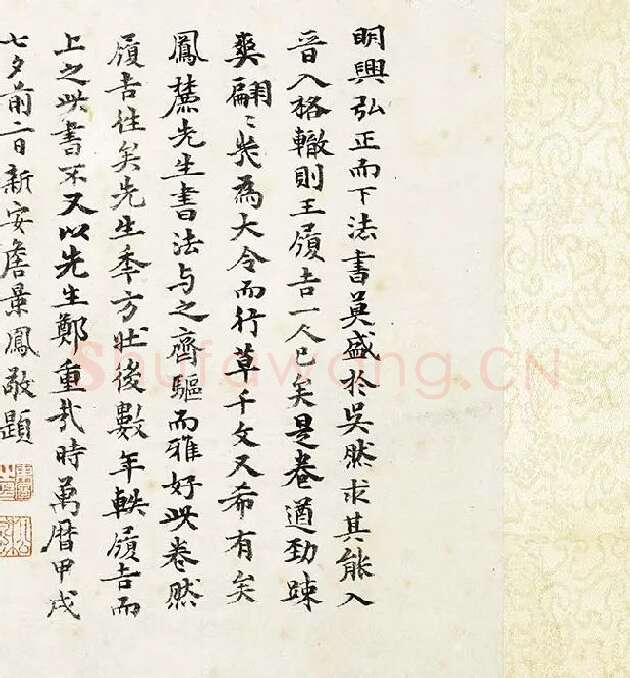 明興弘正而下法書莫盛於吳然求其能入
晉人格轍則王履吉一人已矣是卷遒勁踈
爽翩〻災為大令而行草千文又希有矣
鳳麓先生書法与之齊驅而雅好此卷然
履吉往矣先生季方壯後數年軼履吉而
上之此書不又以先生鄭重哉時萬曆甲戌
七夕前二日新安詹景鳳敬題
Shufawang.CN